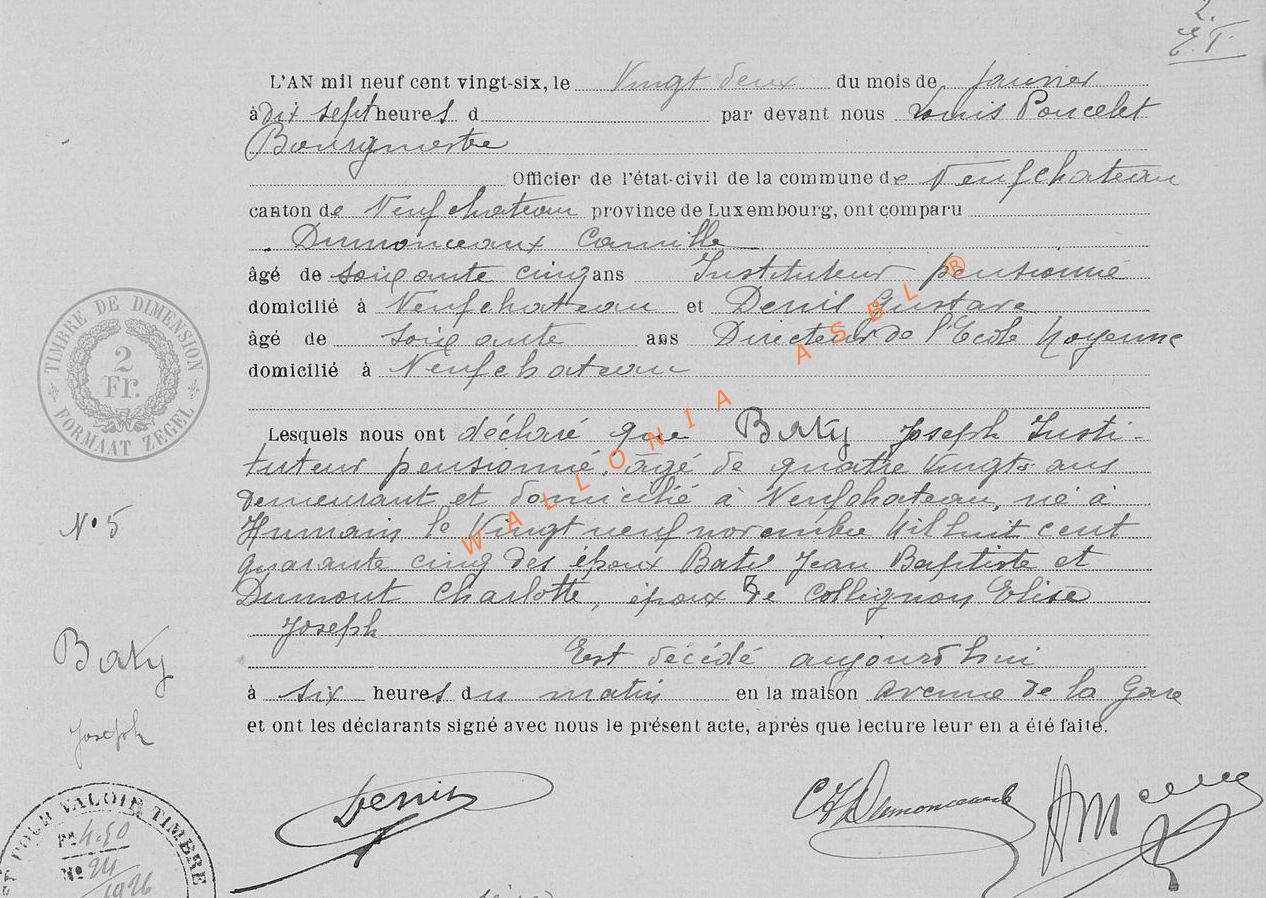 2.
E.T.
L'AN mil neuf cent vingt-six, le Vingt deux du mois de janvier
à dix sept heures d par devant nous Louis Poncelet
Bourgmestre
Officier de l'état-civil de la commune de Neufchateau
canton de Neufchateau province de Luxembourg, ont comparu
Dumonceaux Camille
âgé de soixante cinq ans Instituteur pensionné
domicilié à Neufchateau et Denis Gustave
âgé de soixante ans Directeur de l'Ecole Moyenne
domicilié à Neufchateau
Lesquels nous ont déclaré que Baty Joseph Insti-
tuteur pensionné, âgé de quatre Vingts ans
demeurant et domicilié à Neufchateau, né à
Humain le Vingt neuf novembre Mil huit cent
quarante cinq des époux Baty Jean Baptiste et
Dumont Charlotte, époux de Collignon Elise
Joseph
Est décédé aujourd'hui
à six heures du matin en la maison avenue de la Gare
et ont les déclarants signé avec nous le présent acte, après que lecture leur en a été faite.
Denis
Dumonceaux
TIMBRE DE DIMENSION
2
Fr.
FORMAAT ZEGEL
N° 5
Baty
Joseph
POUR VALOIR TIMBRE
Fr. 4.50
N° 24
1926
WALLONIA ASBL ®